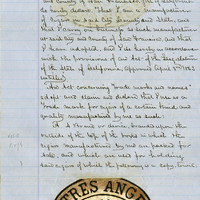 do hereby declare that I am a manufacturer
of Cigars in said City County and State, and
that I carry on business as such manufacturer
at said City and County of San Francisco and that
I have adopted, and I do hereby in accordance
with the provisions of an Act of the Legislature
of the State of California, approved April 3rd 1863
entitled
An Act concerning trade marks and names"
adopt and claim and declare that I use as a
Trade mark for cigars of a certain kind and
quality manufactured by me as such:
A stamp or device, branded upon the
outside of the top of the boxes in which the
cigars manufactured by me are packed for
sale, and which are used for holding
said cigars of which the following is a copy, to wit
TRES ANG